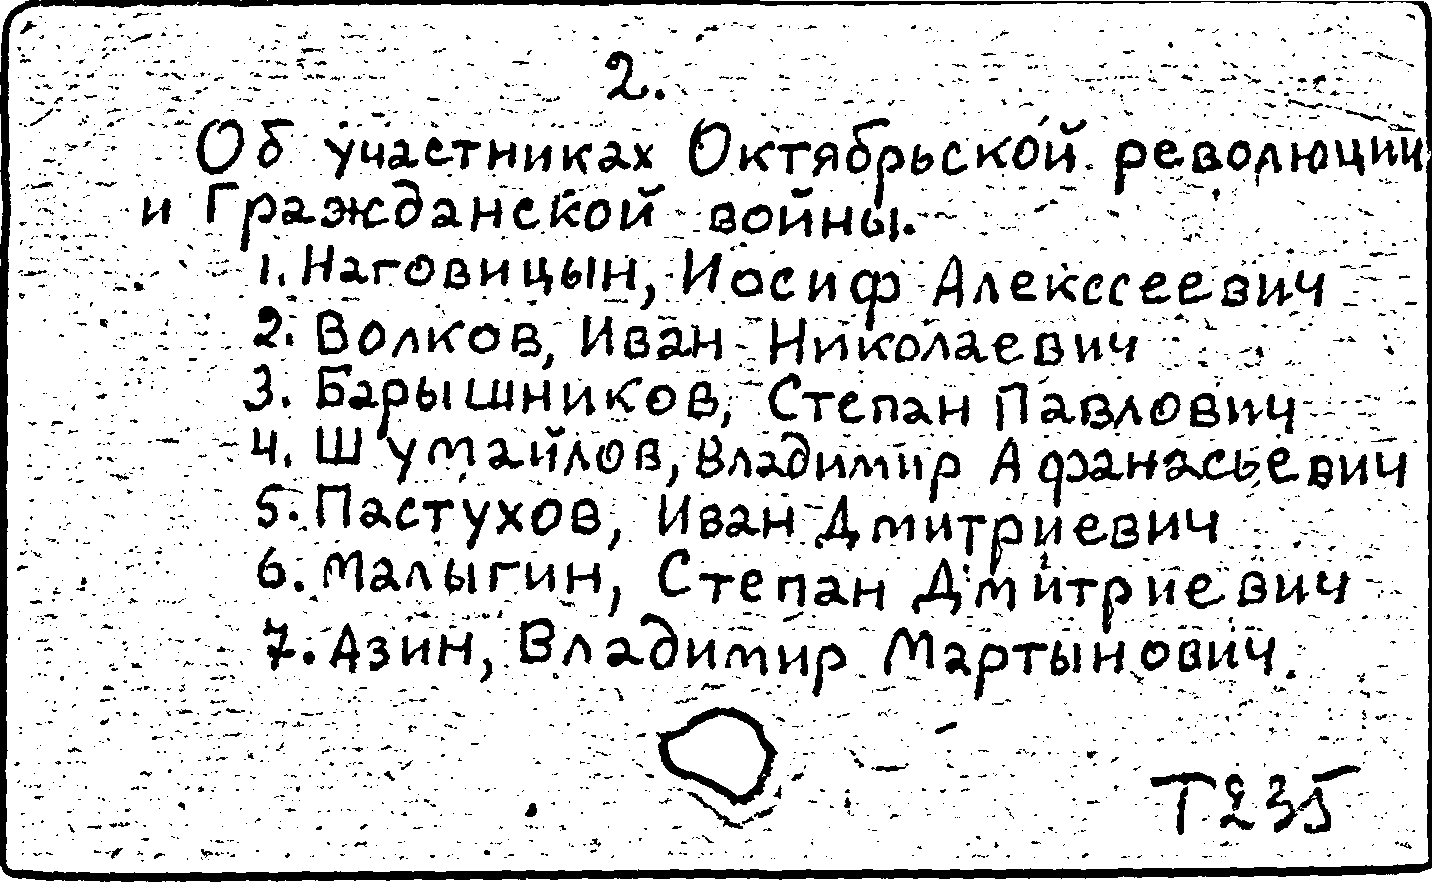 2.
Об участниках Октябрьской революции
и Гражданской войны.
1. Наговицын, Иосиф Алекссеевич
2. Волков, Иван Николаевич
3. Барышников, Степан Павлович
4. Шумайлов, Владимир Афанасьевич
5. Пастухов, Иван Дмитриевич
6. Малыгин, Степан Дмитриевич
7. Азин, Владимир Мартынович.
Т235